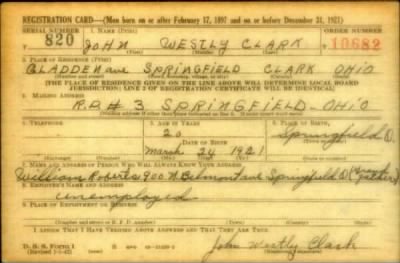 REGISTRATION CARD—(Men born on or after February 17, 1897 and on or before December 31, 1921)
SERIAL NUMBER 1. NAME (Print) ORDER NUMBER
820 JOHN WESTLY CLARK 10682
(First) (Middle) (Last)
2. PLACE OF RESIDENCE (Print)
GLADDEN ave SPRINGFIELD CLARK OHIO
[THE PLACE OF RESIDENCE GIVEN ON THE LINE ABOVE WILL DETERMINE LOCAL BOARD
JURISDICTION; LINE 2 OF REGISTRATION CERTIFICATE WILL BE IDENTICAL]
3. MAILING ADDRESS
R.D. # 3 SPRINGFIELD - OHIO
4. TELEPHONE 5. AGE IN YEARS 6. PLACE OF BIRTH
20 Springfield
DATE OF BIRTH
March 24 1921 O.
7. NAME AND ADDRESS OF PERSON WHO WILL ALWAYS KNOW YOUR ADDRESS
William Roberts 900 N Belmont ave Springfield O
8. EMPLOYER'S NAME AND ADDRESS
Unemployed
9. PLACE OF EMPLOYMENT OR BUSINESS
I AFFIRM THAT I HAVE VERIFIED ABOVE ANSWERS AND THAT THEY ARE TRUE.
D. S. S. Form 1
John Westly Clark